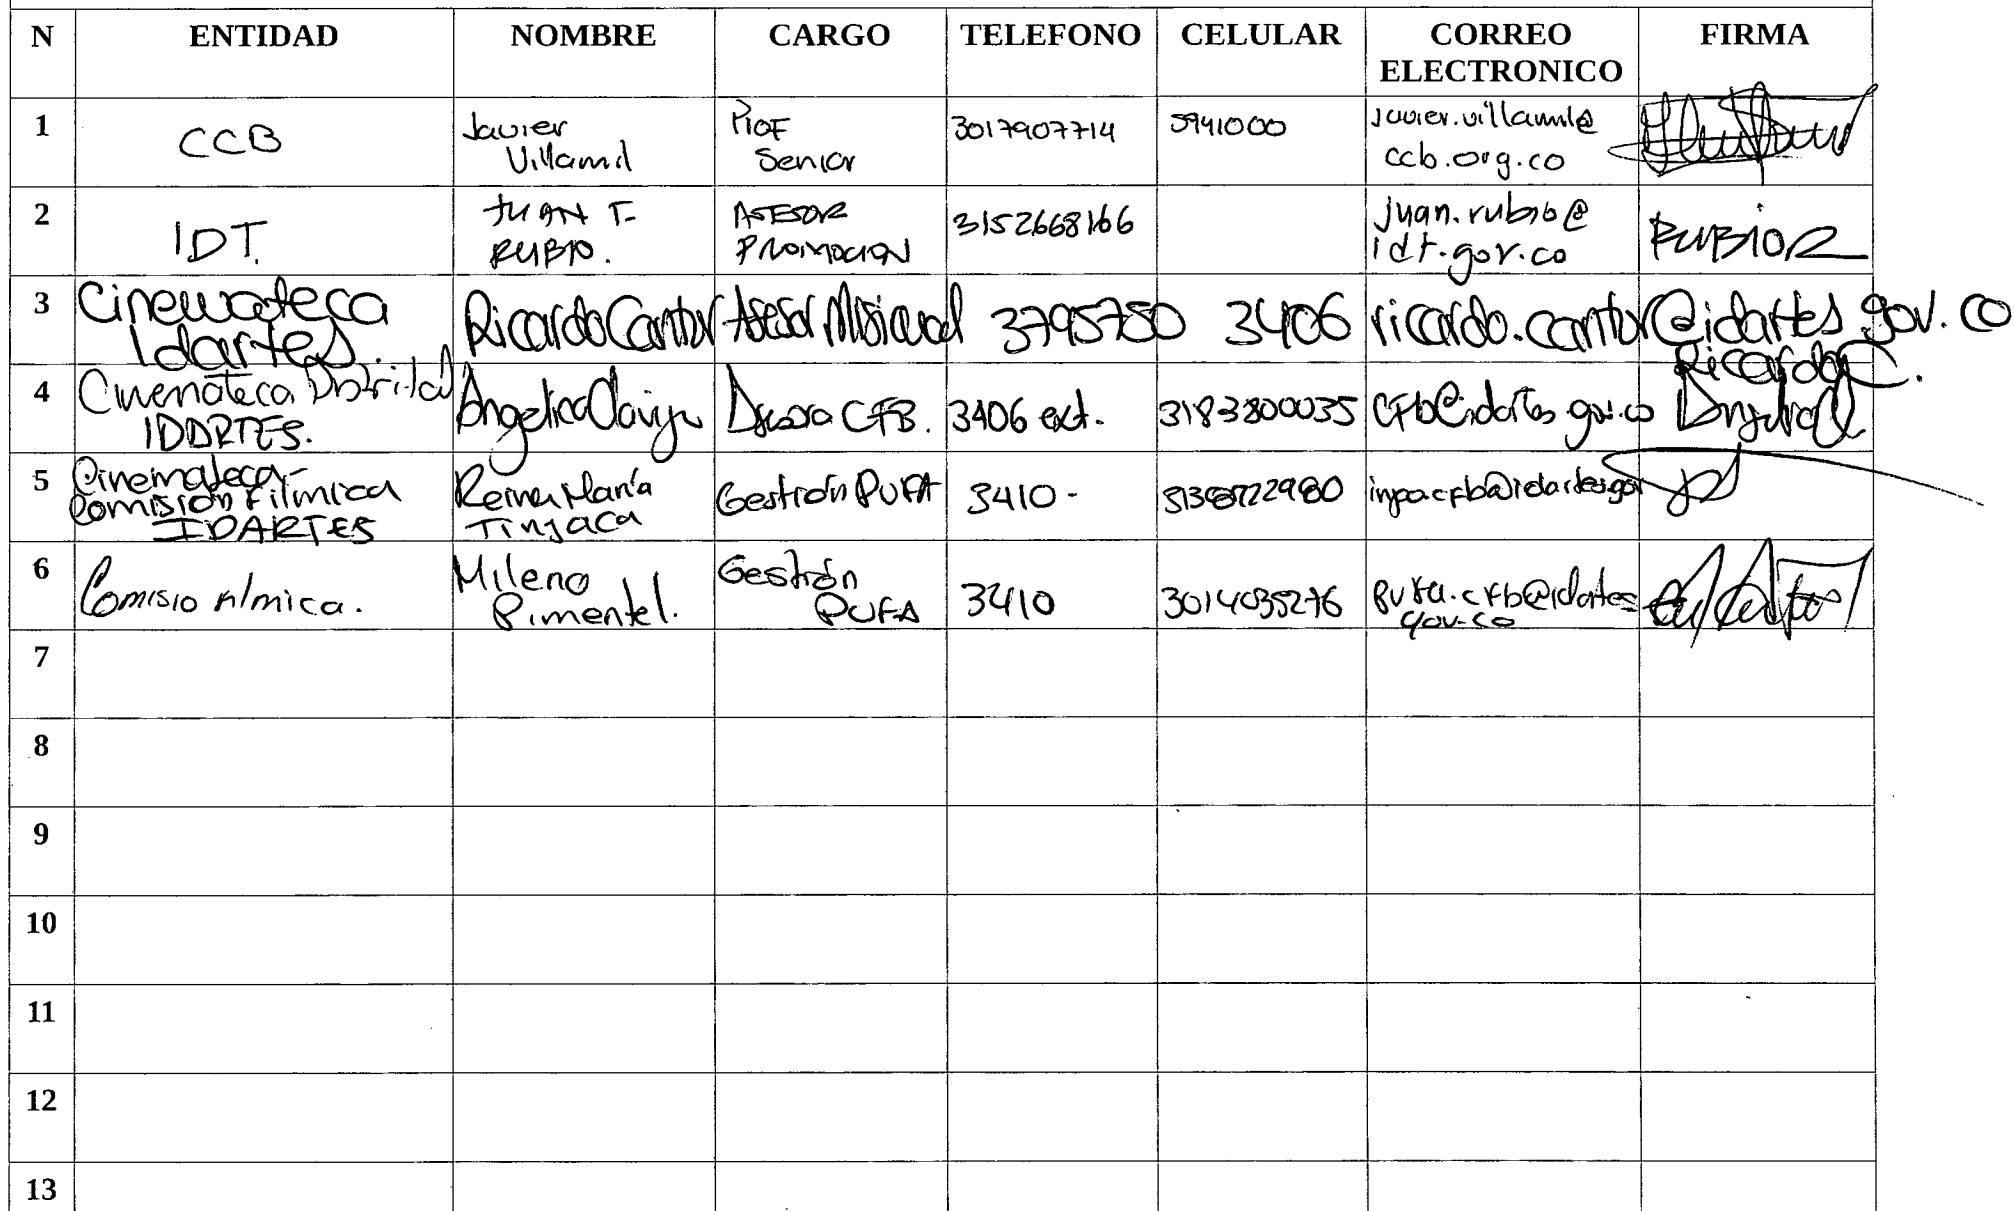 N ENTIDAD NOMBRE CARGO TELEFONO CELULAR CORREO ELECTRONICO FIRMA
1 CCB Javier Villamil Prof Senior 3017907714 5941000 javier.villamil@ccb.org.co
2 IDT. JUAN F. RUBIO. ASESOR PROMOCION 3152668166 juan.rubio@idt.gov.co RUBIOR
3 Cinemateca Idartes. Ricardo Cantor Asesor Misional 3795750 3406 ricardo.cantor@idartes.gov.co Ricardo C.
4 Cinemateca Distrital IDARTES. Angelica Clavijo Asesora CFB. 3406 ext. 3183800035 CFb@idartes.gov.co
5 Cinemateca- Comisión Fílmica IDARTES Reina María Tinjaca Gestión PUFA 3410-
6 Comisio fílmica. Milena Pimentel. Gestión PUFA 3410 3014035276 pufa.cfb@idartes gov.co
7
8
9
10
11
12
13